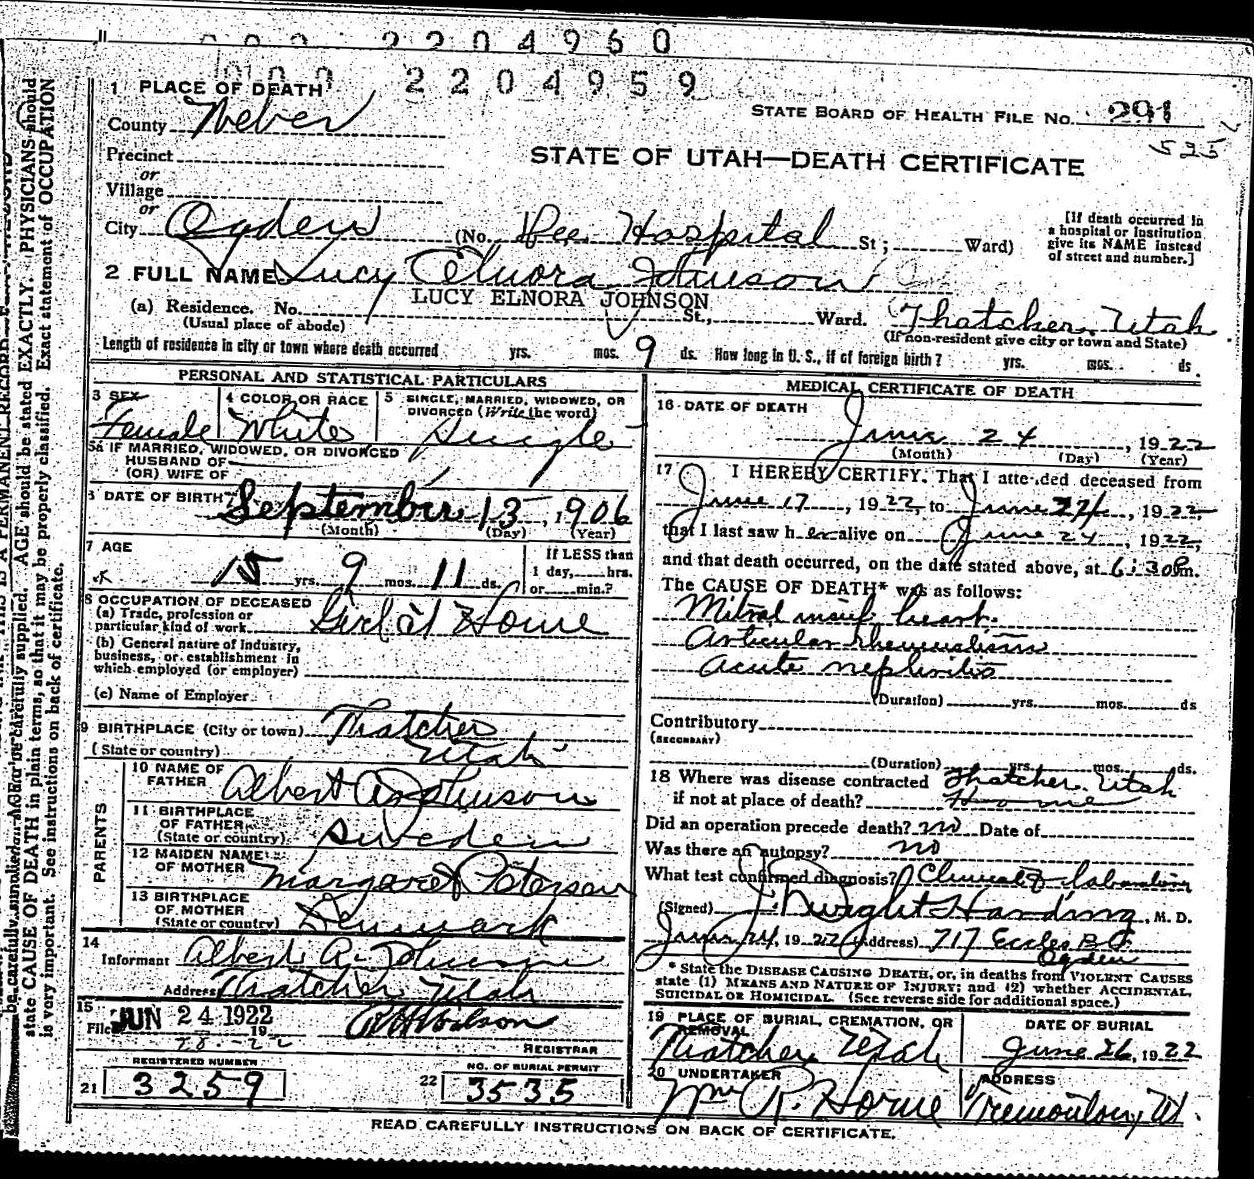 2204960
000 2204959
1 PLACE OF DEATH
County Weber
STATE BOARD OF HEALTH File No. 291
525
Precinct
or
Village
or
STATE OF UTAH—DEATH CERTIFICATE
City Ogden (No. Dee Hospital St; Ward)
[If death occurred in
a hospital or institution
give its NAME instead
of street and number.]
2 FULL NAME Lucy Elnora Johnson
LUCY ELNORA JOHNSON
(a) Residence. No. St., Ward. Thatcher, Utah
(Usual place of abode) (If non-resident give city or town and State)
Length of residence in city or town where death occurred yrs. mos. 9 ds. How long in U. S., if of foreign birth? yrs. mos. ds.
PERSONAL AND STATISTICAL PARTICULARS
3 SEX 4 COLOR OR RACE 5 SINGLE, MARRIED, WIDOWED, OR
DIVORCED (Write the word)
Female White Single
5a IF MARRIED, WIDOWED, OR DIVORCED
HUSBAND OF
(OR) WIFE OF
6 DATE OF BIRTH September 13, 1906
(Month) (Day) (Year)
7 AGE If LESS than
1 day, hrs.
15 yrs. 9 mos. 11 ds. or min.?
8 OCCUPATION OF DECEASED
(a) Trade, profession or
particular kind of work Girl at Home
(b) General nature of industry,
business, or establishment in
which employed (or employer)
(c) Name of Employer
9 BIRTHPLACE (City or town) Thatcher
(State or country) Utah
PARENTS
10 NAME OF
FATHER Albert A Johnson
11 BIRTHPLACE
OF FATHER
(State or country) Sweden
12 MAIDEN NAME
OF MOTHER Margaret Petersen
13 BIRTHPLACE
OF MOTHER
(State or country) Denmark
14
Informant Albert A. Johnson
Address Thatcher Utah
15
Filed JUN 24 1922 19
REGISTRAR
REGISTERED NUMBER
21 3259
NO. OF BURIAL PERMIT
22 3535
MEDICAL CERTIFICATE OF DEATH
16 DATE OF DEATH
June 24, 1922
(Month) (Day) (Year)
17 I HEREBY CERTIFY. That I attended deceased from
June 17, 1922, to June 24, 1922,
that I last saw her alive on June 24, 1922,
and that death occurred, on the date stated above, at 6:30 Pm.
The CAUSE OF DEATH* was as follows:
Mitral insuf. heart.
Articular rheumatism
Acute nephritis
(Duration) yrs. mos. ds
Contributory
(SECONDARY)
(Duration) yrs. mos. ds.
18 Where was disease contracted Thatcher, Utah
if not at place of death? Home
Did an operation precede death? no Date of
Was there an autopsy? no
What test confirmed diagnosis? Clinical & laboratory
(Signed) J. Dwight Harding, M. D.
June 24, 1922 (Address) 717 Eccles Bd.
Ogden
* State the DISEASE CAUSING DEATH, or, in deaths from VIOLENT CAUSES
state (1) MEANS AND NATURE OF INJURY; and (2) whether ACCIDENTAL,
SUICIDAL OR HOMICIDAL. (See reverse side for additional space.)
19 PLACE OF BURIAL, CREMATION, OR
REMOVAL DATE OF BURIAL
Thatcher Utah June 26, 1922
20 UNDERTAKER ADDRESS
Wm R. Horne Tremonton, Ut.
READ CAREFULLY INSTRUCTIONS ON BACK OF CERTIFICATE.
be carefully supplied. AGE should be stated EXACTLY. PHYSICIANS should
state CAUSE OF DEATH in plain terms, so that it may be properly classified. Exact statement of OCCUPATION
is very important. See instructions on back of certificate.